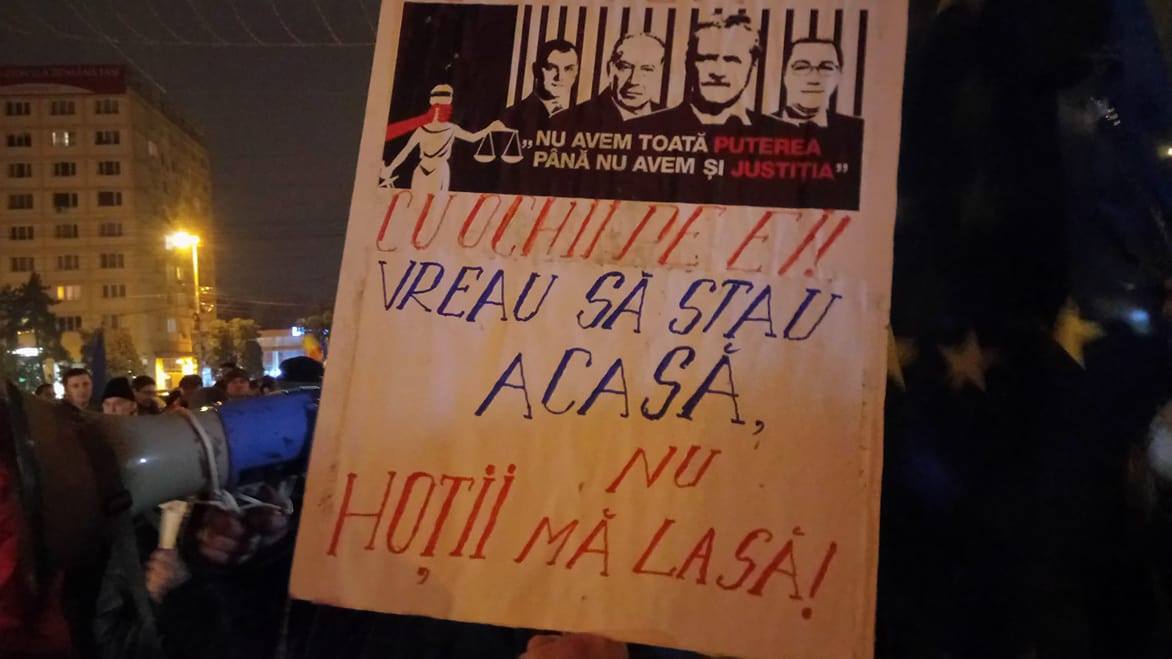 „NU AVEM TOATĂ PUTEREA
PÂNĂ NU AVEM ȘI JUSTIȚIA”
CU OCHII PE EI!
VREAU SĂ STAU
ACASĂ,
NU
HOȚII MĂ LASĂ!